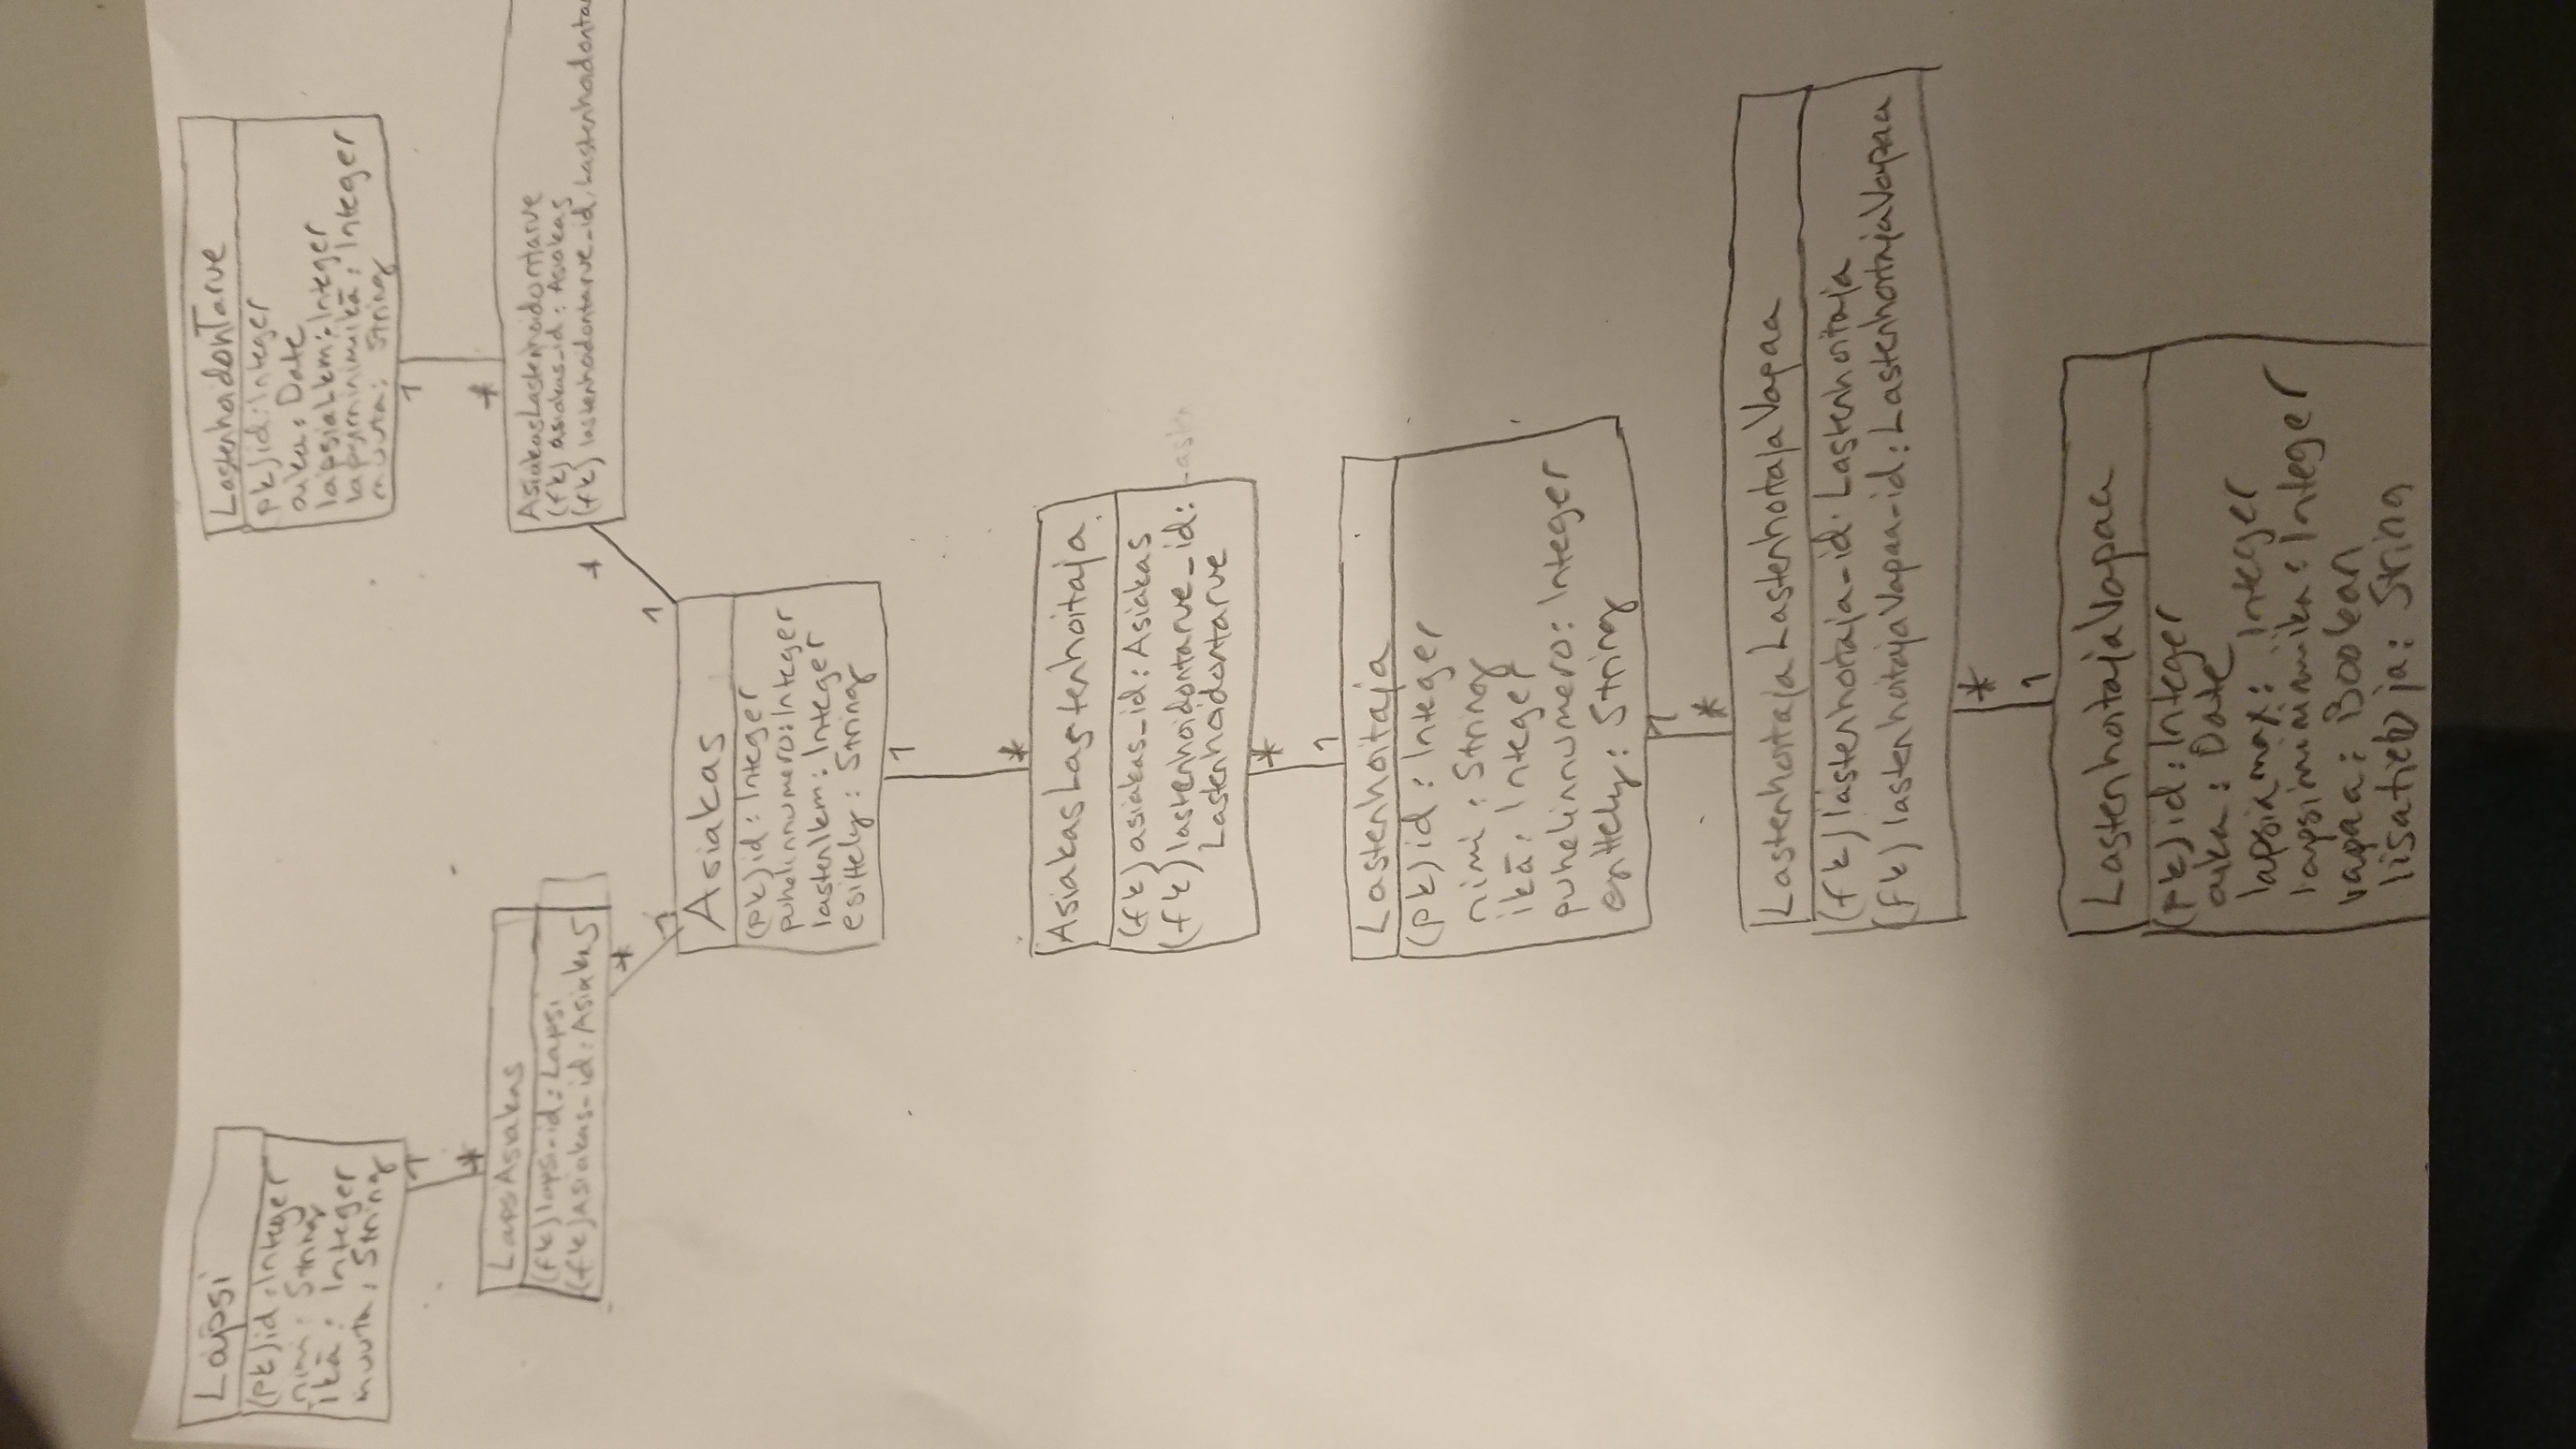 Lapsi
(pk)id:Integer
nimi: String
ikä: Integer
muuta: String
1
*
LapsiAsiakas
(fk)lapsi-id:Lapsi
(fk)Asiakas-id:Asiakas
*
1
LastenhoidonTarve
pk)id:Integer
aika: Date
lapsiaLkm:Integer
lapsiminimikä: Integer
muuta: String
1
*
AsiakasLastenhoidontarve
(fk) asiakas_id: Asiakas
(fk) lastenhoidontarve_id:Lastenhoidonta
*
1
Asiakas
(pk)id: Integer
puhelinnumero:Integer
lastenlkm: Integer
esittely: String
1
*
AsiakasLastenhoitaja
(fk) asiakas_id: Asiakas
(fk) lastenhoidontarve_id: Lasten
Lastenhoidontarve
*
1
Lastenhoitaja
(pk)id: Integer
nimi: String
ikä: Integer
puhelinnumero: Integer
esittely: String
1
*
LastenhoitajaLastenhoitajaVapaa
(fk) lastenhoitaja-id: Lastenhoitaja
(fk) lastenhoitajaVapaa-id: LastenhoitajaVapaa
*
1
LastenhoitajaVapaa
(pk)id: Integer
aika: Date
lapsiamax: Integer
lapsiminimiika: Integer
vapaa: Boolean
lisatietoja: String